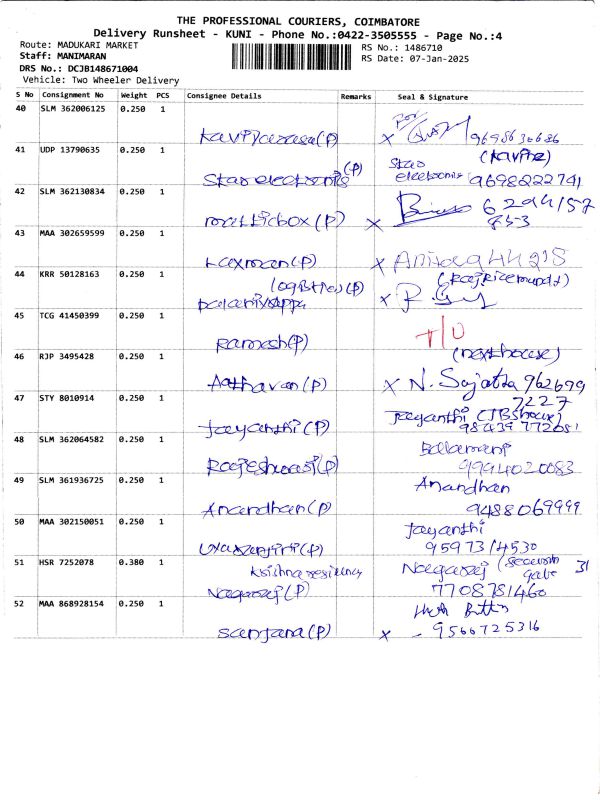 THE PROFESSIONAL COURIERS, COIMBATORE
Delivery Runsheet - KUNI - Phone No.:0422-3505555 - Page No.:4
Route: MADUKARI MARKET
RS No.: 1486710
Staff: MANIMARAN
RS Date: 07-Jan-2025
DRS No.: DCJB148671004
Vehicle: Two Wheeler Delivery
S No Consignment No Weight PCS Consignee Details Remarks Seal & Signature
40 SLM 362006125 0.250 1
(P) X 9698630686
41 UDP 13790635 0.250 1
Star electronics (P) Star electronic 9698222741
42 SLM 362130834 0.250 1
matticbox (P) X 6294157
853
43 MAA 302659599 0.250 1
Laxman (P) X 44215
44 KRR 50128163 0.250 1
(P) X
45 TCG 41450399 0.250 1
Ramesh (P)
46 RJP 3495428 0.250 1
(next house)
Aathavan (P) X N. Sujatha 962699
7227
47 STY 8010914 0.250 1
Jayanthi (P) Jayanthi
48 SLM 362064582 0.250 1
Rajeshwari (P) Balamani
9994020083
49 SLM 361936725 0.250 1
Anandhan (P) Anandhan
9488069999
50 MAA 302150051 0.250 1
(P) Jayanthi
9597314530
51 HSR 7252078 0.380 1
Krishna residency
Nagaraj (P) Nagaraj
7708781460
52 MAA 868928154 0.250 1
Sanjana (P) X - 9566725316